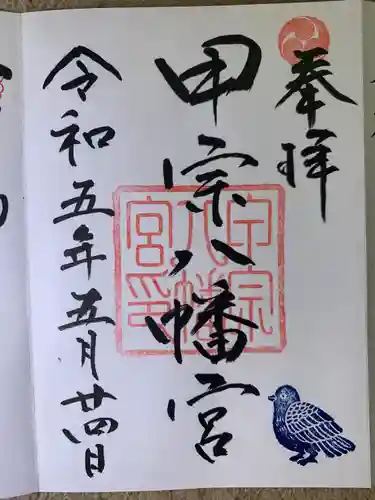 奉拝
甲宗八幡宮
甲宗八幡宮印
令和五年五月廿四日